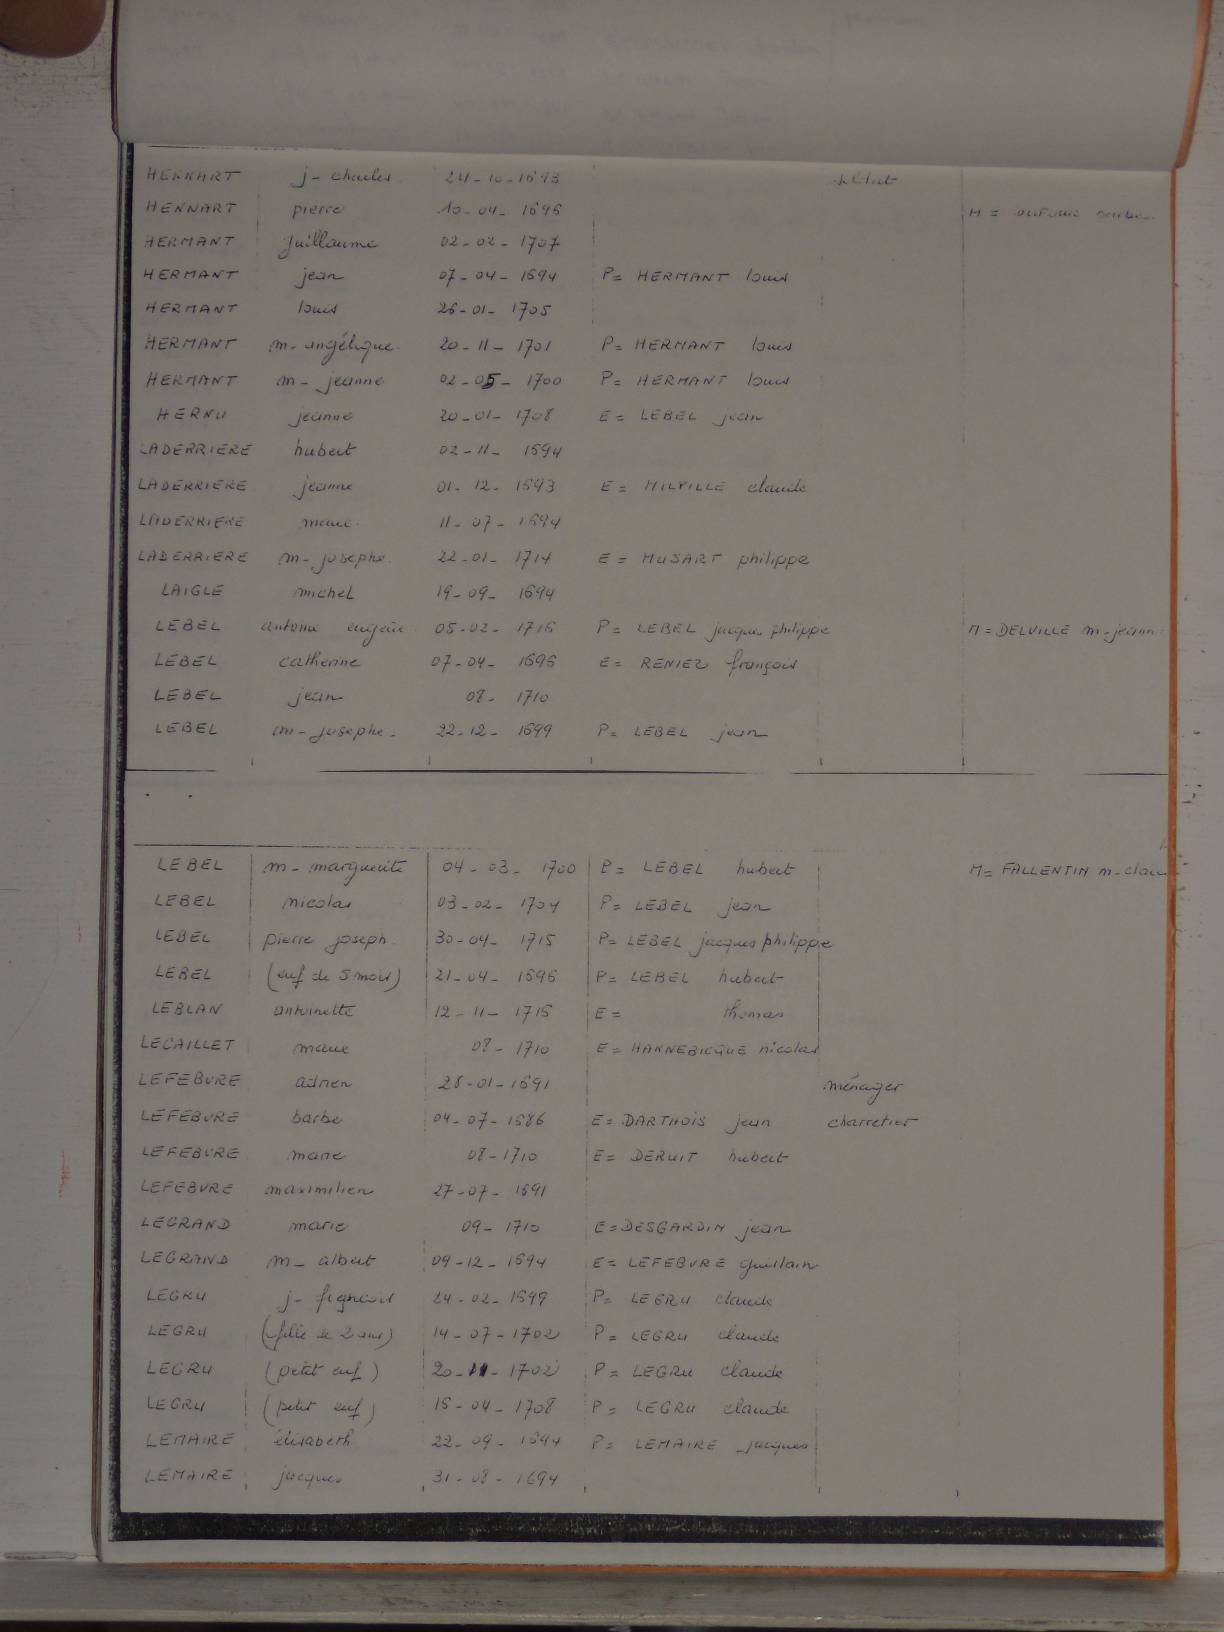 HENNART j- charles 24-10-1693 soldat
HENNART pierre 10-04-1696 M =
HERMANT guillaume 02-02-1707
HERMANT jean 07-04-1694 P= HERMANT louis
HERMANT louis 26-01-1705
HERMANT m-angélique 20-11-1701 P= HERMANT louis
HERMANT m-jeanne 02-05-1700 P= HERMANT louis
HERNU jeanne 20-01-1708 E= LEBEL jean
LADERRIERE hubert 02-11-1694
LADERRIERE jeanne 01-12-1693 E= MILVILLE claude
LADERRIERE marie 11-07-1694
LADERRIERE m-josephe 22-01-1714 E= MUSART philippe
LAIGLE michel 19-09-1694
LEBEL antoine eugène 05-02-1716 P= LEBEL jacque philippe M= DELVILLE m-jeann
LEBEL catherine 07-04-1696 E= RENIEZ françois
LEBEL jean 08-1710
LEBEL m-josephe 22-12-1699 P= LEBEL jean
LEBEL m-marguerite 04-03-1700 P= LEBEL hubert M= FALLENTIN m-clai
LEBEL nicolas 03-02-1704 P= LEBEL jean
LEBEL pierre joseph 30-04-1715 P= LEBEL jacques philippe
LEBEL (enf de 5 mois) 21-04-1696 P= LEBEL hubert
LEBLAN antoinette 12-11-1715 E= thomas
LECAILLET marie 08-1710 E= HANNEBICQUE nicolas
LEFEBVRE adrien 28-01-1691 ménager
LEFEBVRE barbe 04-07-1686 E= DARTHOIS jean charretier
LEFEBVRE marie 08-1710 E= DERUIT hubert
LEFEBVRE maximilien 27-07-1691
LEGRAND marie 09-1710 E= DESGARDIN jean
LEGRAND m-albert 09-12-1694 E= LEFEBVRE guislain
LEGRU j- 24-02-1699 P= LEGRU claude
LEGRU (fille de 2 ans) 14-07-1702 P= LEGRU claude
LEGRU (petit enf) 20-11-1702 P= LEGRU claude
LEGRU (petit enf) 15-04-1708 P= LEGRU claude
LEMAIRE élisabeth 22-09-1694 P= LEMAIRE jacques
LEMAIRE jacques 31-08-1694